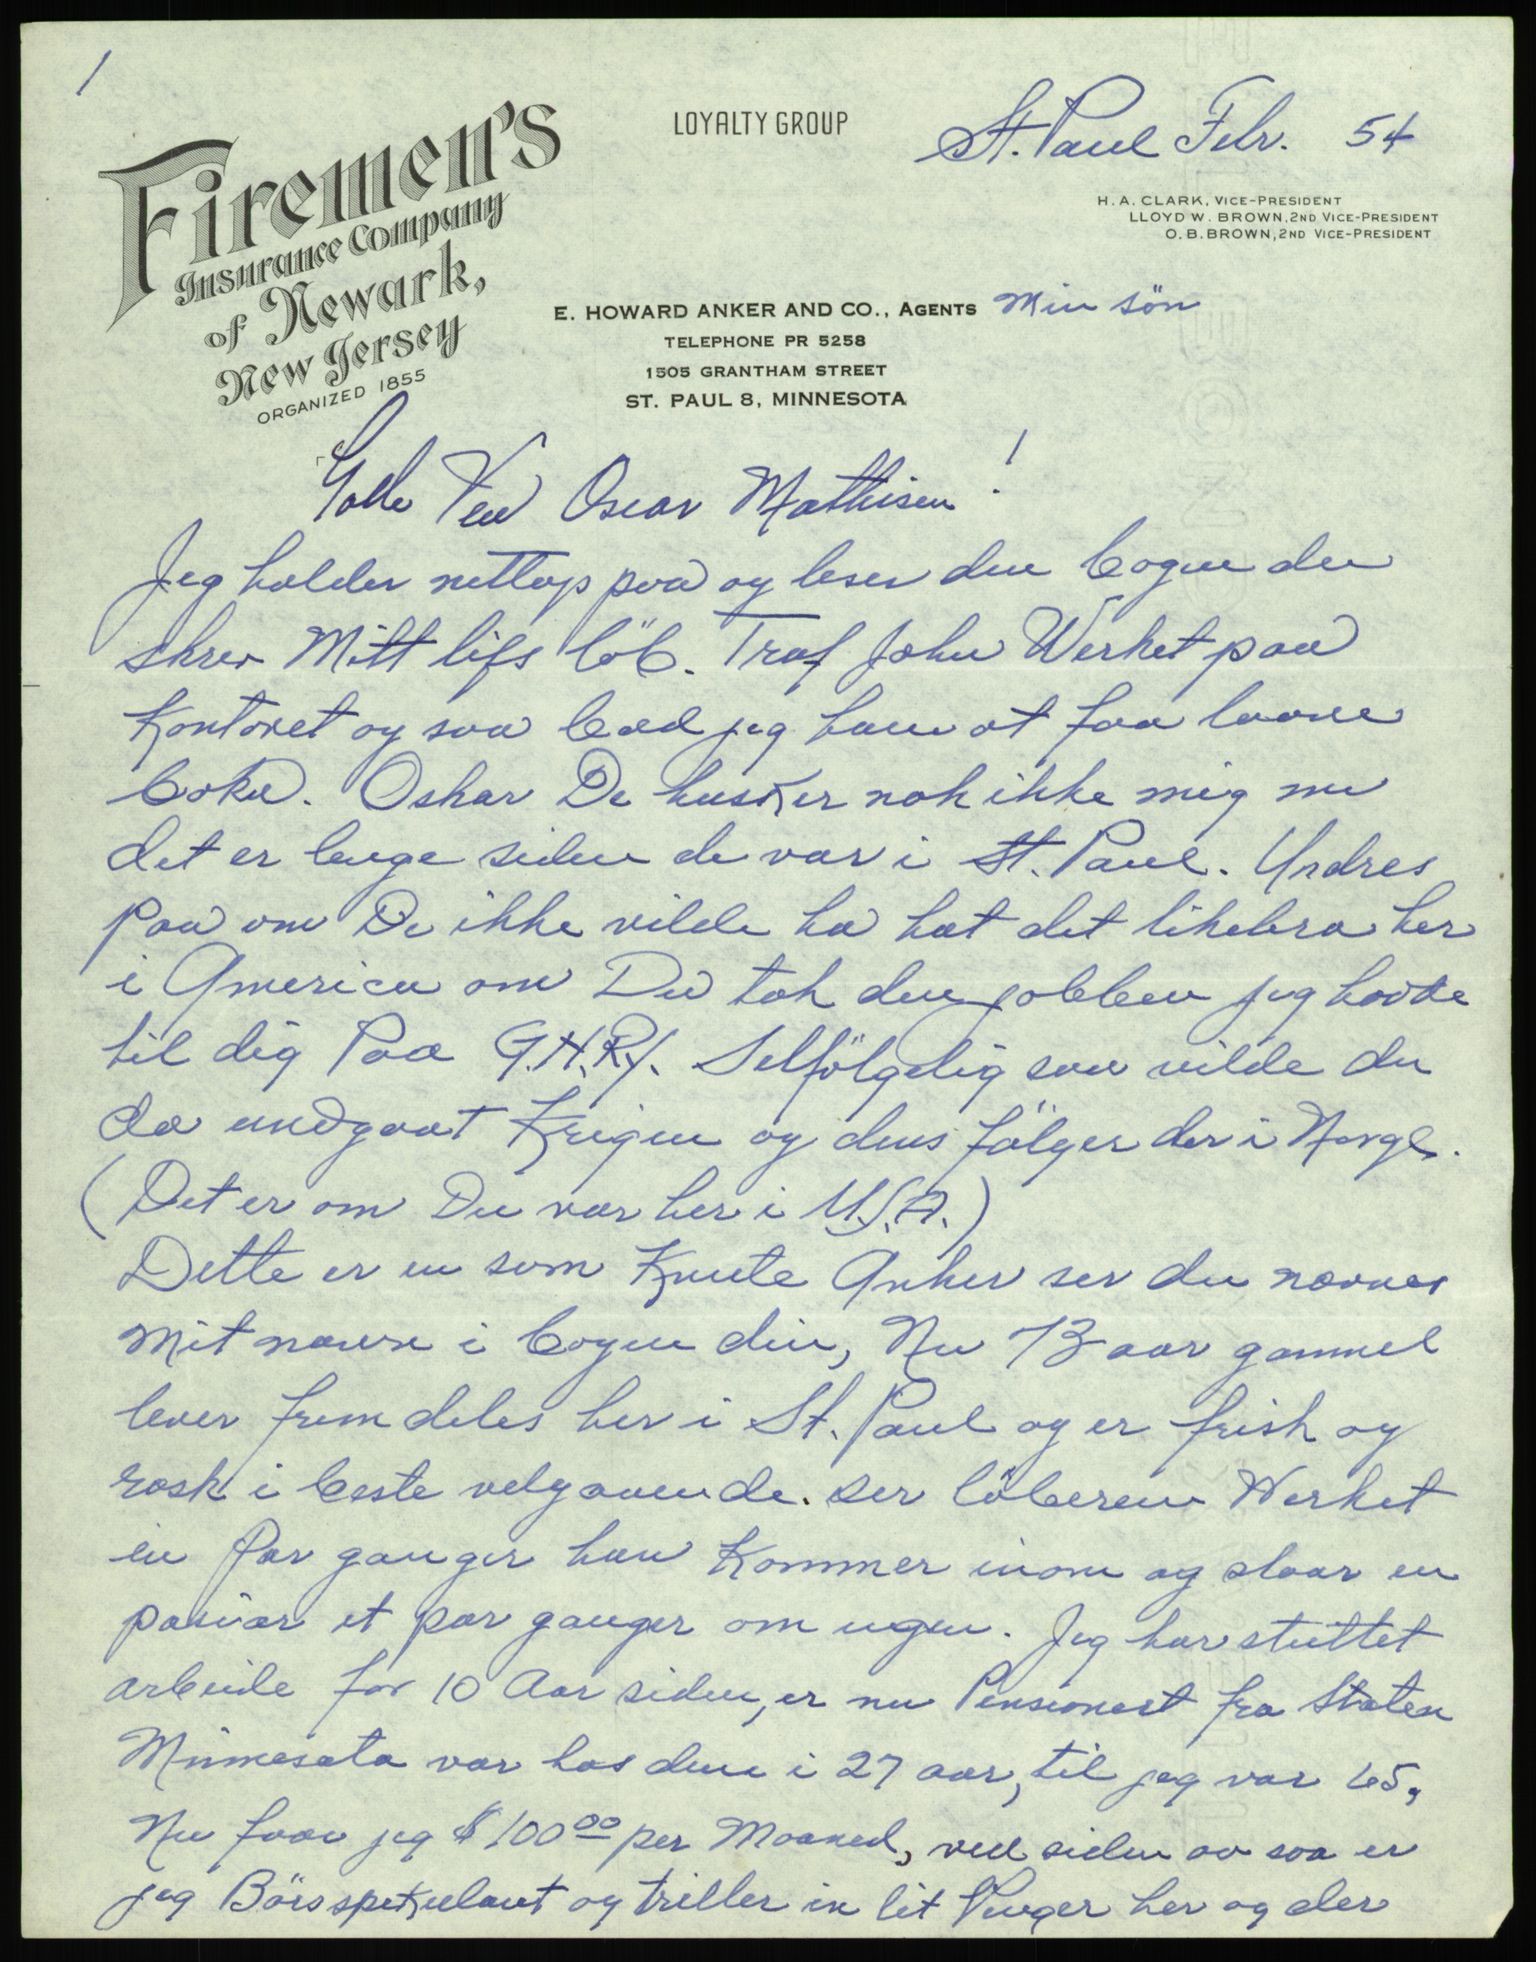 1
Firemen's
Insurance Company
of Newark,
New Jersey
ORGANIZED 1855
LOYALTY GROUP
St. Paul Febr. 54
H. A. CLARK, VICE-PRESIDENT
LLOYD W. BROWN, 2ND VICE-PRESIDENT
O. B. BROWN, 2ND VICE-PRESIDENT
E. HOWARD ANKER AND CO., AGENTS Min sön
TELEPHONE PR 5258
1505 GRANTHAM STREET
ST. PAUL 8, MINNESOTA
Ven Oscar Mathisen!
Jeg holder nettop paa og leser den bogen du
skrev Mitt lifs löb. Traf John Werket paa
Kontoret og saa bad jeg ham at faa laane
boka. Oskar De husker nok ikke mig nu
det er lenge siden de var i St. Paul. Undres
paa om De ikke vilde ha hat det likebra her
i America om Du tok den jobben jeg havde
til dig Paa G.N.Ry. Selfölgelig saa vilde du
da undgaat Krigen og dens fölger der i Norge.
(Det er om Du var her i U.S.A.)
Dette er en som Knute Anker ser du nævner
mit navn i bogen din, Nu 73 aar gammel
lever fremdeles her i St. Paul og er frisk og
rask i beste velgaaende. ser löberen Werket
en Par ganger han Kommer inom og slaar en
pasiar et par ganger om ugen. Jeg har sluttet
arbeide for 10 Aar siden, er nu Pensionert fra Staten
Minnesota var hos dem i 27 aar, til jeg var 65,
Nu faar jeg $100.00 per Maaned, ved siden av saa er
jeg Börsspekulant og triller in lit Penger her og der